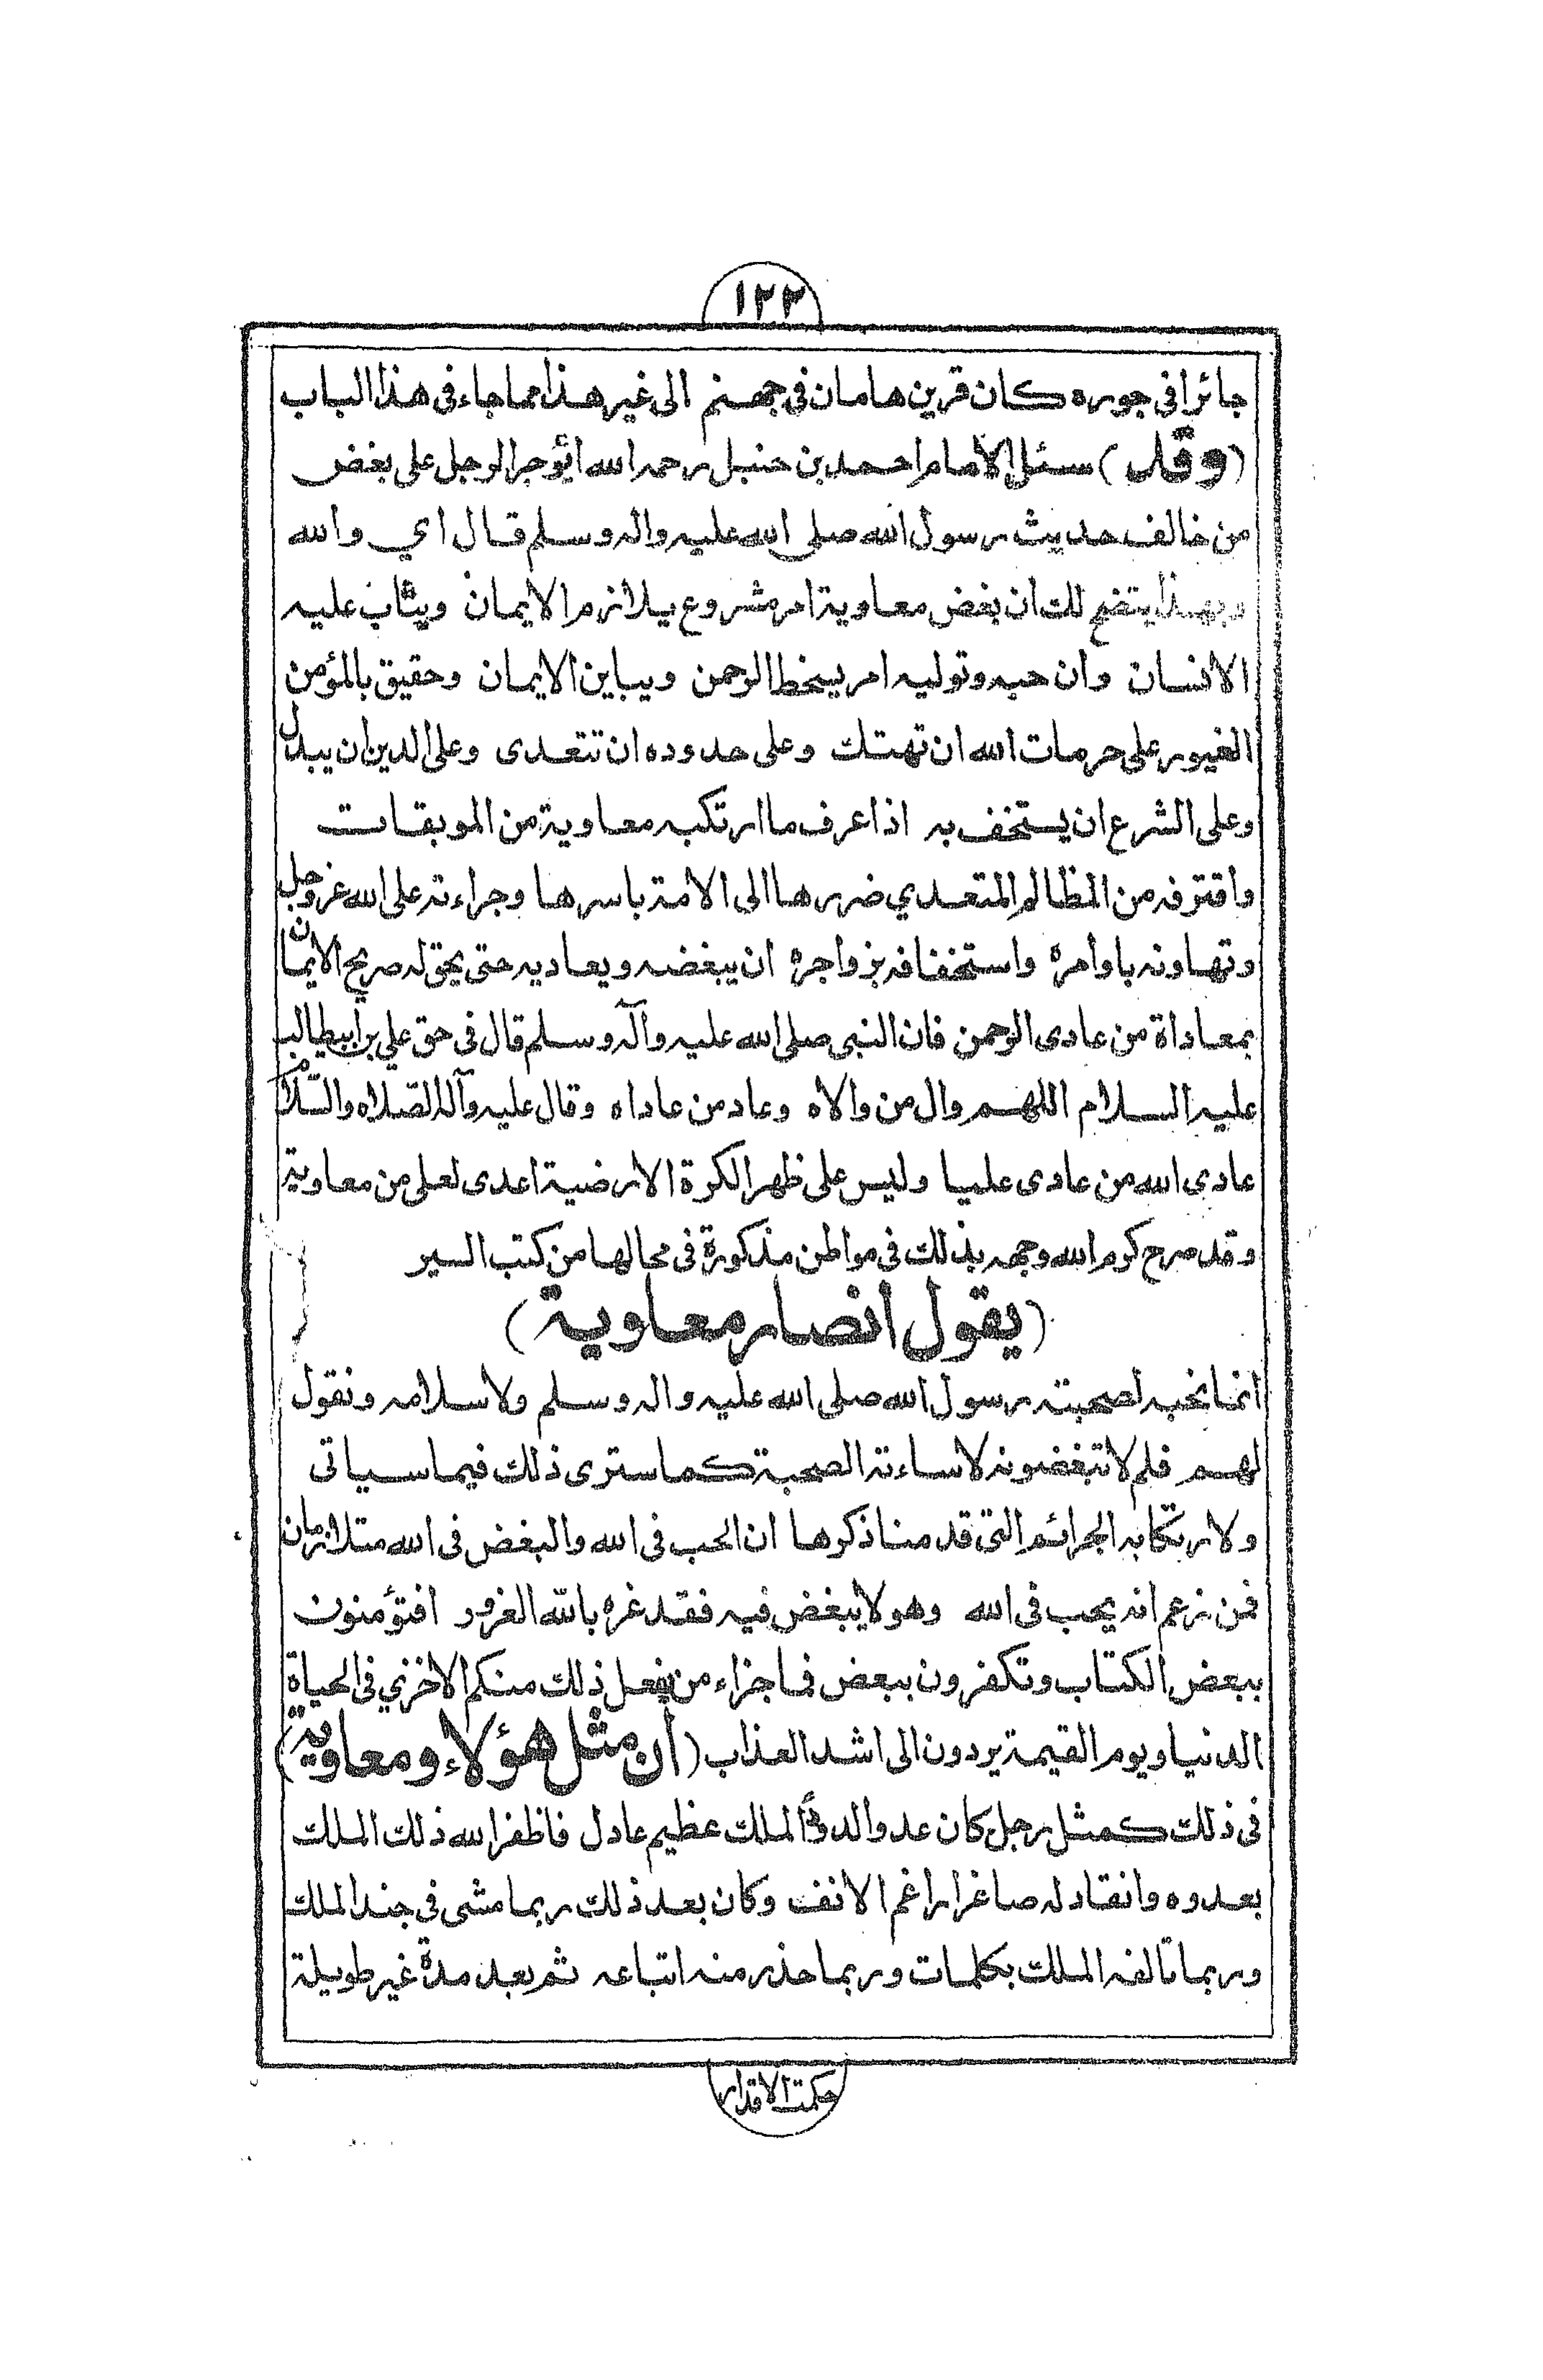 ١٢٢
جائرا في جوره كان قرين هامان في جهنم الى غير هذا مما جاء في هذا الباب
(وقد) سئل الامام احمد بن حنبل رحمه الله أيؤجر الرجل على بغض
من خالف حديث رسول الله صلى الله عليه واله وسلم قال اي والله
وبهذا يتضح لك ان بغض معاوية امر مشروع يلازم الايمان ويثاب عليه
الانسان وان حبه وتوليه امر يسخط الرحمن ويباين الايمان وحقيق بالمؤمن
الغيور على حرمات الله ان تهتك وعلى حدوده ان تتعدى وعلى الدين ان يبدل
وعلى الشرع ان يستخف به اذا عرف ما ارتكبه معاوية من الموبقات
واقترفه من المظالم المتعدي ضررها الى الامة باسرها وجراءته على الله عز وجل
وتهاونه باوامره واستخفافه بزواجره ان يبغضه ويعاديه حتى يحق له صريح الايمان
بمعاداة من عادى الرحمن فان النبي صلى الله عليه وآله وسلم قال في حق علي بن ابيطالب
عليه السلام اللهم وال من والاه وعاد من عاداه وقال عليه وآله الصلاه والسّلام
عادى الله من عادى عليا وليس على ظهر الكرة الارضية اعدى لعلي من معاوية
وقد صرح كرم الله وجهه بذلك في مواطن مذكورة في محالها من كتب السير
(يقول انصار معاوية)
انما نحبه لصحبته رسول الله صلى الله عليه واله وسلم ولاسلامه ونقول
لهم فلم لا تبغضونه لاساءته الصحبة كما سترى ذلك فيما سياتى
ولارتكابه الجرائم التى قدمنا ذكرها ان الحب فى الله والبغض فى الله متلازمان
فمن زعم انه يحب فى الله وهو لا يبغض فيه فقد غره بالله الغرور افتؤمنون
ببعض الكتاب وتكفرون ببعض فما جزاء من يفعل ذلك منكم الا خزي فى الحياة
الدنيا ويوم القيمة يردون الى اشد العذاب (ان مثل هؤلاء ومعاوية)
فى ذلك كمثل رجل كان عدوا لدودًا لملك عظيم عادل فاظفر الله ذلك الملك
بعدوه وانقاد له صاغرا راغم الانف وكان بعد ذلك ربما مشى في جند الملك
وربما تالفه الملك بكلمات وربما حذر منه اتباعه ثم بعد مدة غير طويلة
حكمت الاقدار